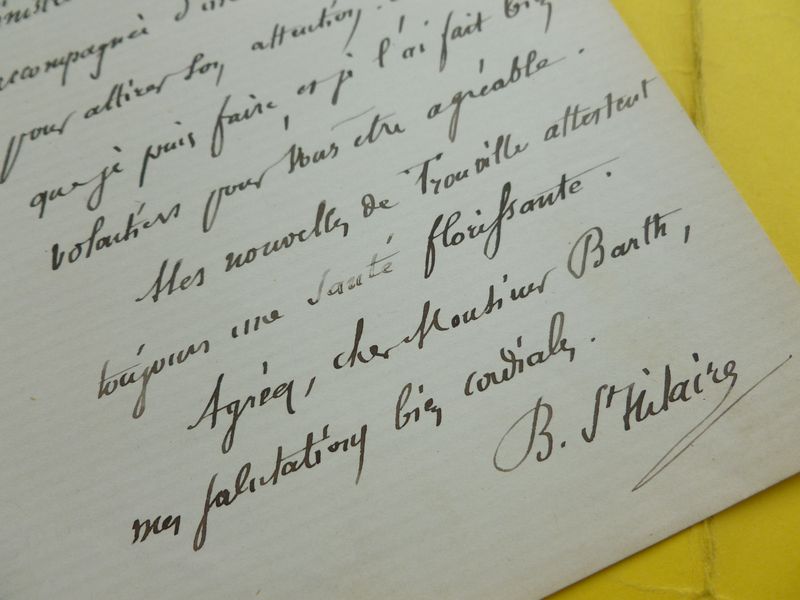 accompagnée d'un
pour attirer son attention.
que je puis faire, et je l'ai fait bien
volontiers pour vous être agréable.
Mes nouvelles de Trouville attestent
toujours une santé florissante.
Agréez, cher Monsieur Barth,
mes salutations bien cordiales.
B. St Hilaire